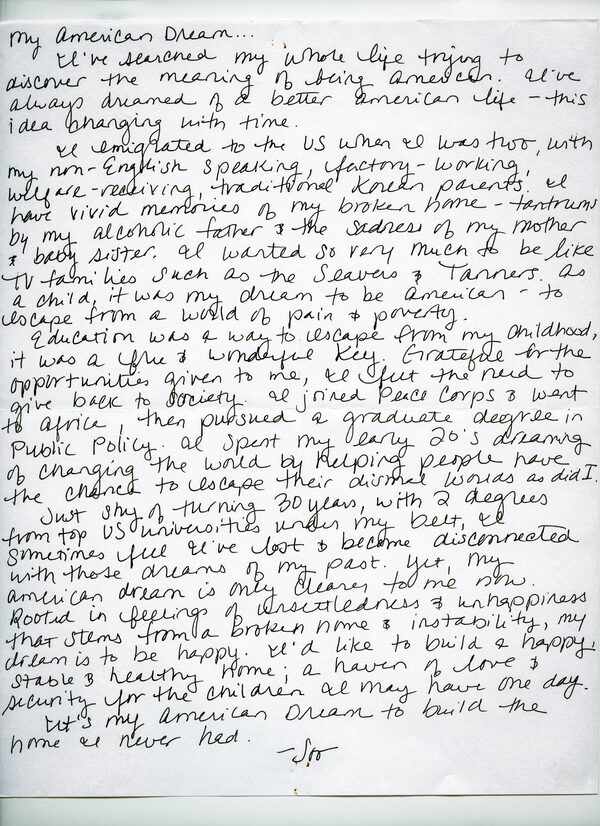 My American Dream...
I've searched my whole life trying to
discover the meaning of being American. I've
always dreamed of a better American life - this
idea changing with time.
I emigrated to the US when I was two, with
my non-English speaking, factory-working,
welfare-receiving, traditional Korean parents. I
have vivid memories of my broken home - tantrums
by my alcoholic father & the sadness of my mother
& baby sister. I wanted so very much to be like
TV families such as the Seavers & Tanners. As
a child, it was my dream to be American - to
escape from a world of pain & poverty.
Education was a way to escape from my childhood,
it was a free & wonderful key. Grateful for the
opportunities given to me, I felt the need to
give back to society. I joined Peace Corps & went
to Africa, then pursued a graduate degree in
Public Policy. I spent my early 20's dreaming
of changing the world by helping people have
the chance to escape their dismal worlds as did I.
Just shy of turning 30 years, with 2 degrees
from top US universities under my belt, I
sometimes feel I've lost & become disconnected
with those dreams of my past. Yet, my
American dream is only clearer to me now.
Rooted in feelings of unsettledness & unhappiness
that stems from a broken home & instability, my
dream is to be happy. I'd like to build a happy,
stable & healthy home; a haven of love &
security for the children I may have one day.
It's my American Dream to build the
home I never had.
- Soo